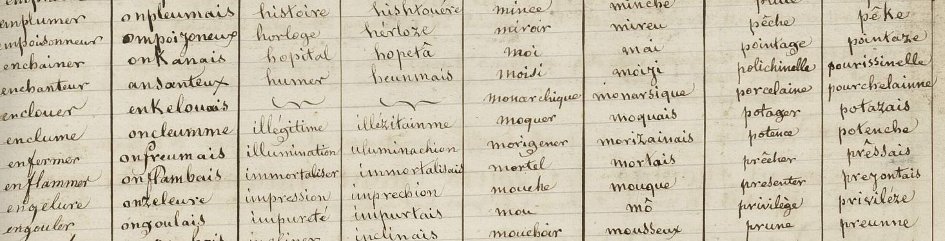 emplumer onpleumais histoire hishtouére mince minche
empoisonneur ompoizoneux horloge hérloze miroir mireu pêche pêke
enchainer onkanais hopital hopetâ moi mai pointage pointaze
enchanteur ansanteux humer heunmais moisi moizi polichinelle pourissinelle
enclouer enkelouais monarchique monarsique porcelaine pourchelainne
enclume oncleumme illégitime illézitainme moquer moquais potager potazais
enfermer onfreumais illumination uluminachion morigener morizainais potence potenche
enflammer onflambais immortaliser immortalisais mortel mortais prêcher prêssais
engelure onzeleure impression imprechion mouche mouque presenter prezontais
engouler ongoulais impureté impurtais mou mô privilège priviléze
incliner inclinais mouchoir mousseux prune preunne